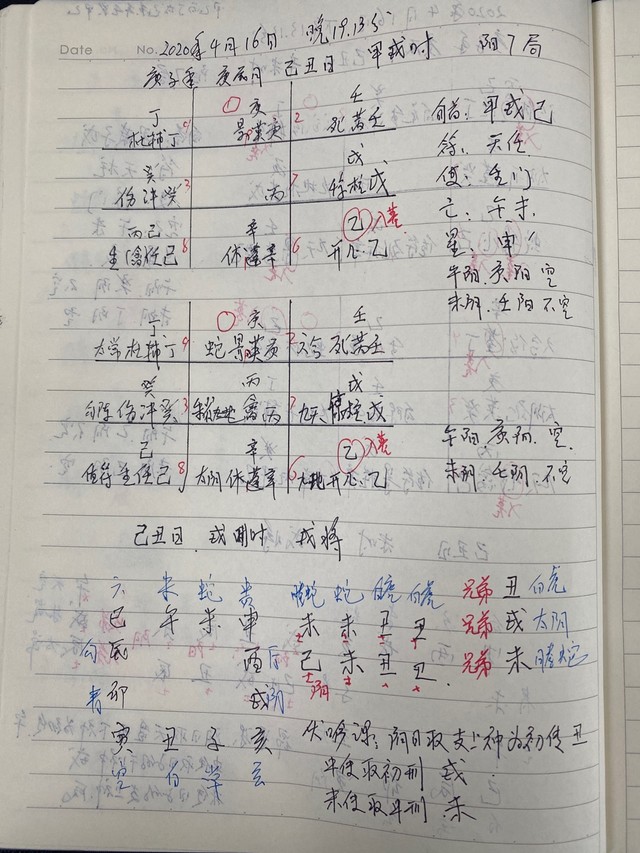 Date No. 2020年4月16日 晚19.13分
庚子年 庚辰月 己丑日 甲戌时 阳7局
丁 庚 壬 旬首: 甲戌己
杜辅丁 4 景英庚 死芮壬 2 符: 天任
癸 戊 使: 生门
伤冲癸 3 丙 7 惊柱戊 亡: 午未
丙己 辛 乙 入墓 星: 申
生禽任己 8 休蓬辛 6 开心乙 午阴.庚阳 空
未阴.壬阳 不空
丁 庚 壬
杜辅丁 4 蛇景英庚 2 六合死芮壬
癸 丙 戊
勾陈伤冲癸 3 禽丙 7 九天惊柱戊
己 辛 乙 入墓 午阳.庚阴.空
值符生任己 8 太阴休蓬辛 6 九地开心乙 未阴.壬阳.不空
己丑日.戌时 戌将
六 朱 蛇 贵 螣蛇 蛇 白虎 白虎 兄弟 丑 白虎
巳 午 未 申 未 未 丑 丑 兄弟 戌 太阴
勾 辰 酉 后 己 未 丑 丑 兄弟 未 螣蛇
青 卯 戌 阴
寅 丑 子 亥 伏吟课: 阴日取支上神为初传丑
空 白 常 玄 中传取初刑 戌
末传取中刑 未